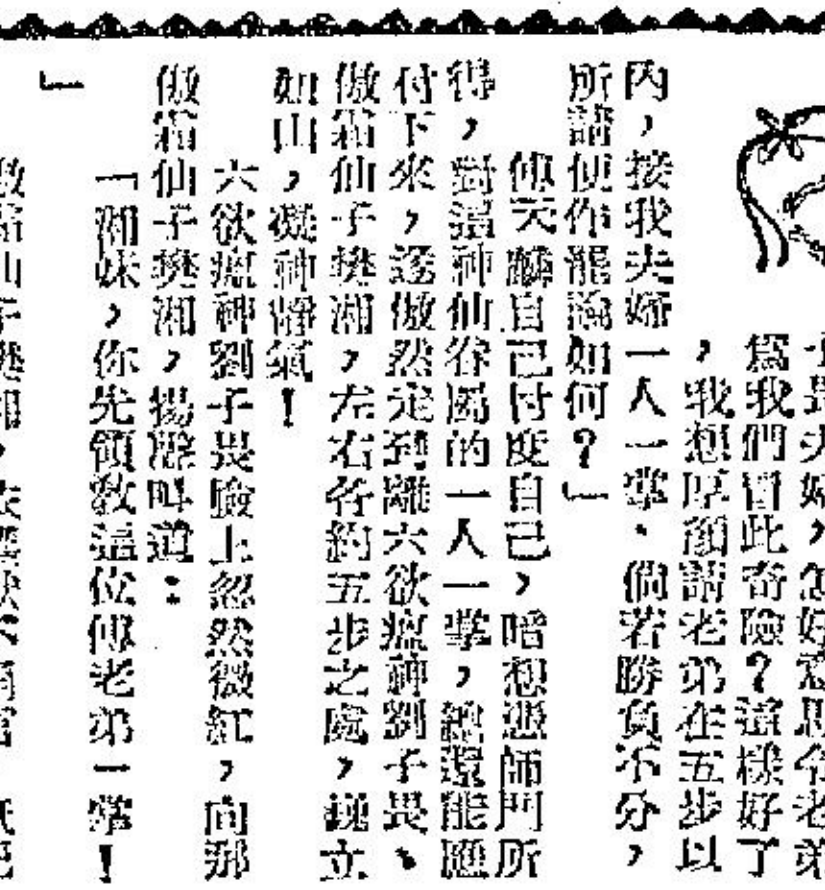 是夫婦,怎好意思令老弟
爲我們冒此奇險?這樣好了
,我想厚顏請老弟在五步以
內,接我夫婦一人一掌.倘若勝負不分,
所請便作罷論如何?」
傅天麟自己忖度自己,暗想恩師門所
得,對瘟神仙眷屬的一人一掌,總還能應
付下來,遂傲然走到離六欲瘟神劉子畏、
傲霜仙子樊湘,左右各約五步之處,巍立
如山,凝神靜氣!
六欲瘟神劉子畏臉上忽然微紅,向那
傲霜仙子樊湘,揚聲叫道:
「湘妹,你先領教這位傅老弟一掌!
」
傲霜仙子樊湘,